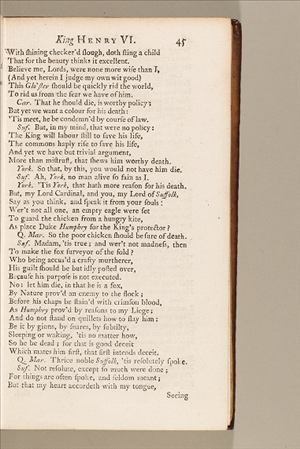 King HENRY VI. 45
With shining checker'd slough, doth sting a child
That for the beauty thinks it excellent.
Believe me, Lords, were none more wise than I,
(And yet herein I judge my own wit good)
This Glo'ster should be quickly rid the world,
To rid us from the fear we have of him.
Car. That he should die, is worthy policy;
But yet we want a colour for his death:
'Tis meet, he be condemn'd by course of law.
Suf. But, in my mind, that were no policy:
The King will labour still to save his life,
The commons haply rise to save his life,
And yet we have but trivial argument,
More than mistrust, that shews him worthy death.
York. So that, by this, you would not have him die.
Suf. Ah, York, no man alive so fain as I.
York. 'Tis York, that hath more reason for his death.
But, my Lord Cardinal, and you, my Lord of Suffolk,
Say as you think, and speak it from your souls:
Wer't not all one, an empty eagle were set
To guard the chicken from a hungry kite,
As place Duke Humphry for the King's protector?
Q. Mar. So the poor chicken should be sure of death.
Suf. Madam, 'tis true; and wer't not madness, then
To make the fox surveyor of the fold?
Who being accus'd a crafty murtherer,
His guilt should be but idly posted over,
Because his purpose is not executed.
No: let him die, in that he is a fox,
By Nature prov'd an enemy to the flock;
Before his chaps be stain'd with crimson blood,
As Humphry prov'd by reasons to my Liege;
And do not stand on quillets how to slay him:
Be it by gins, by snares, by subtilty,
Sleeping or waking, 'tis no matter how,
So he be dead; for that is good deceit
Which mates him first, that first intends deceit.
Q. Mar. Thrice noble Suffolk, 'tis resolutely spoke.
Suf. Not resolute, except so much were done;
For things are often spoke, and seldom meant;
But that my heart accordeth with my tongue,
Seeing